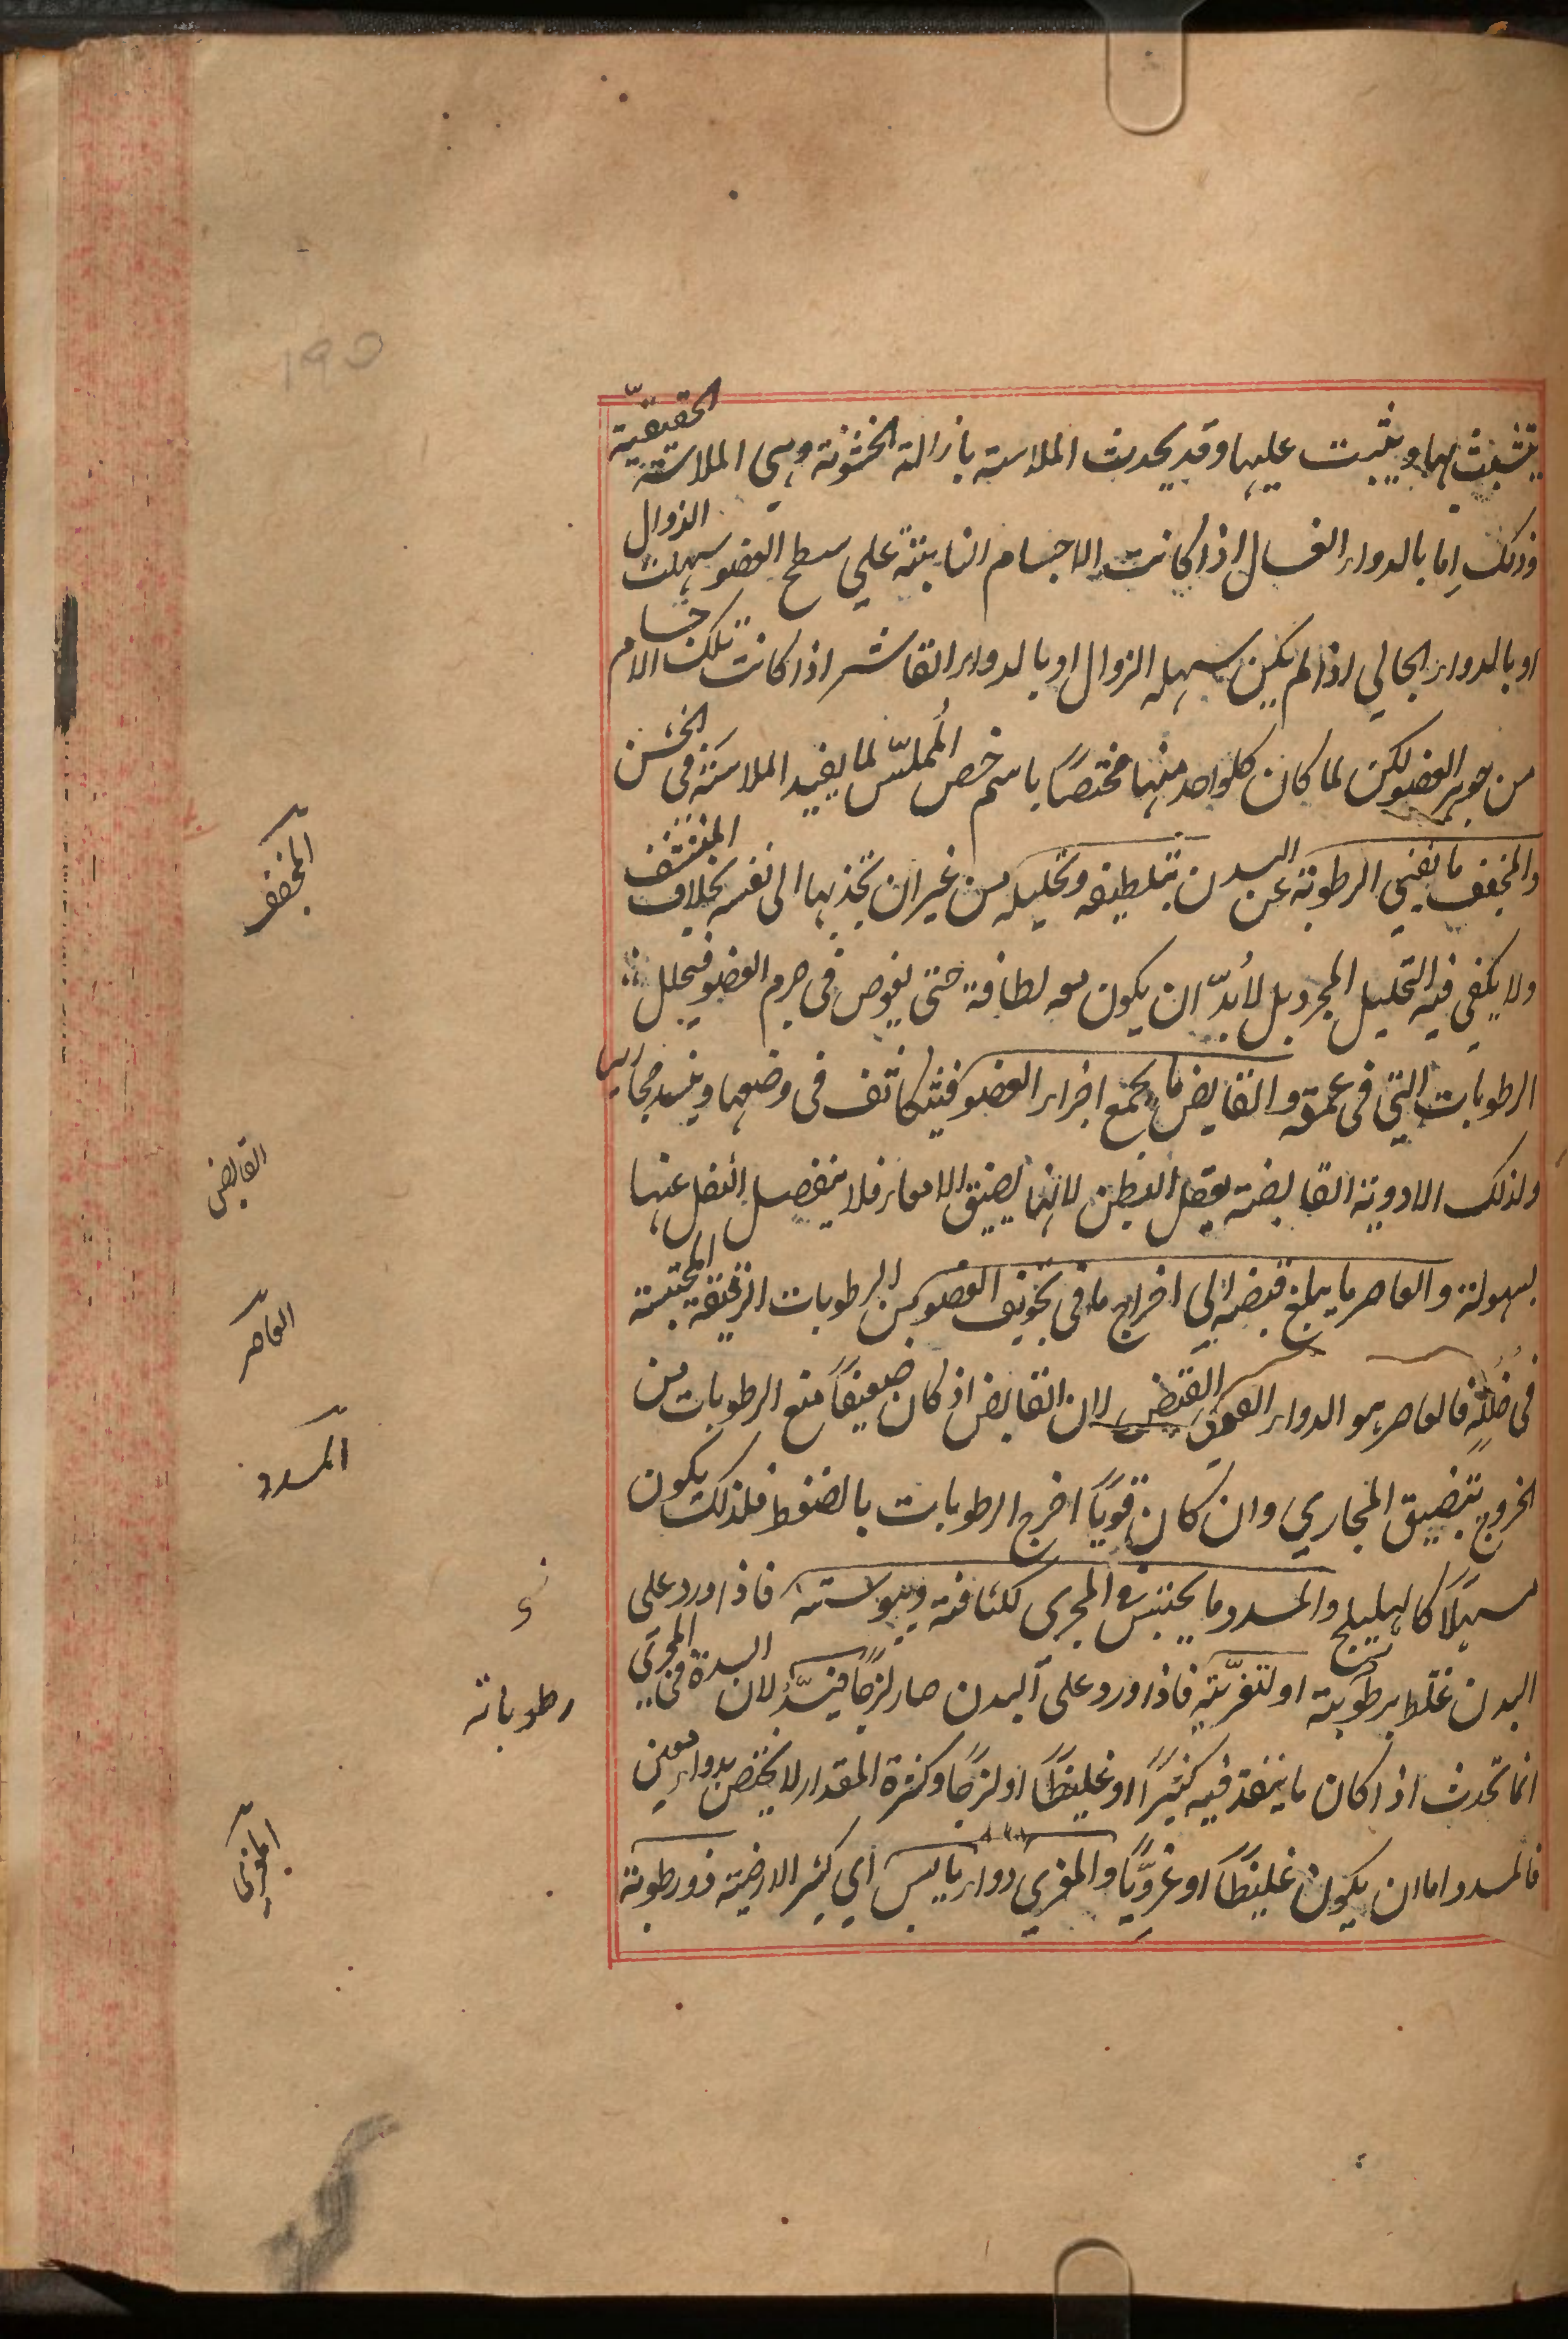 يتشبث بها ويثبت عليها وقد يحدث الملاسة بازالة الخشونة وهي الملاسة الحقيقية
وذلك اما بالدواء الغسال اذا كانت الاجسام النابتة على سطح العضو سهلت الزوال
او بالدواء الجالي اذا لم يكن سهلة الزوال او بالدواء القاشر اذا كانت تلك الاجسام
من جوهر العضو لكن لما كان كلواحد منها مختصًا باسم خص المُملّس لما يفيد الملاسة فى الخشن
والمجفف ما يفني الرطوبة عن البدن بتلطيفه وتحليله من غير ان يجذبها الى نفسه بخلاف المنشف
ولا يكفي فيه التحليل المجرد بل لا بُدّ ان يكون معه لطافة حتى يغوص فى جرم العضو فيحلل
الرطوبات التي فى عمقه والقابض ما يجمع اجزاء العضو فيتكاثف فى وضعها وينسد مجاريه
ولذلك الادوية القابضة يعقل البطن لانها يضيق الامعاء فلا ينفصل الثفل عنها
بسهولة والعاصر ما يبلغ قبضه الى اخراج ما فى تجويف العضو من الرطوبات الرقيقة المحتبسة
فى خُلَلِه فالعاصر هو الدواء القوى القبض لان القابض اذ كان ضعيفًا منع الرطوبات من
الخروج بتضييق المجاري وان كان قويًا اخرج الرطوبات بالضغط فلذلك يكون
مسهلًا كالهليلج والمسدد ما يحتبس فى المجرى لكثافته ويبوسته فاذا ورد على
البدن غلظ برطوبته او لتغريته فاذا ورد على البدن صار لزجًا فيسدّ لان السدة فى المجرى
انما تحدث اذا كان ما ينفذ فيه كثيرًا او غليظًا او لزجًا وكثرة المقدار لا يختص بدواء معين
فالمسدد اما ان يكون غليظًا او غرويًا والمغري دواء يابس اي كثير الارضية ذو رطوبة
المجفف
القابض
العاصر
المسدد
رطوباته
المغرى
190